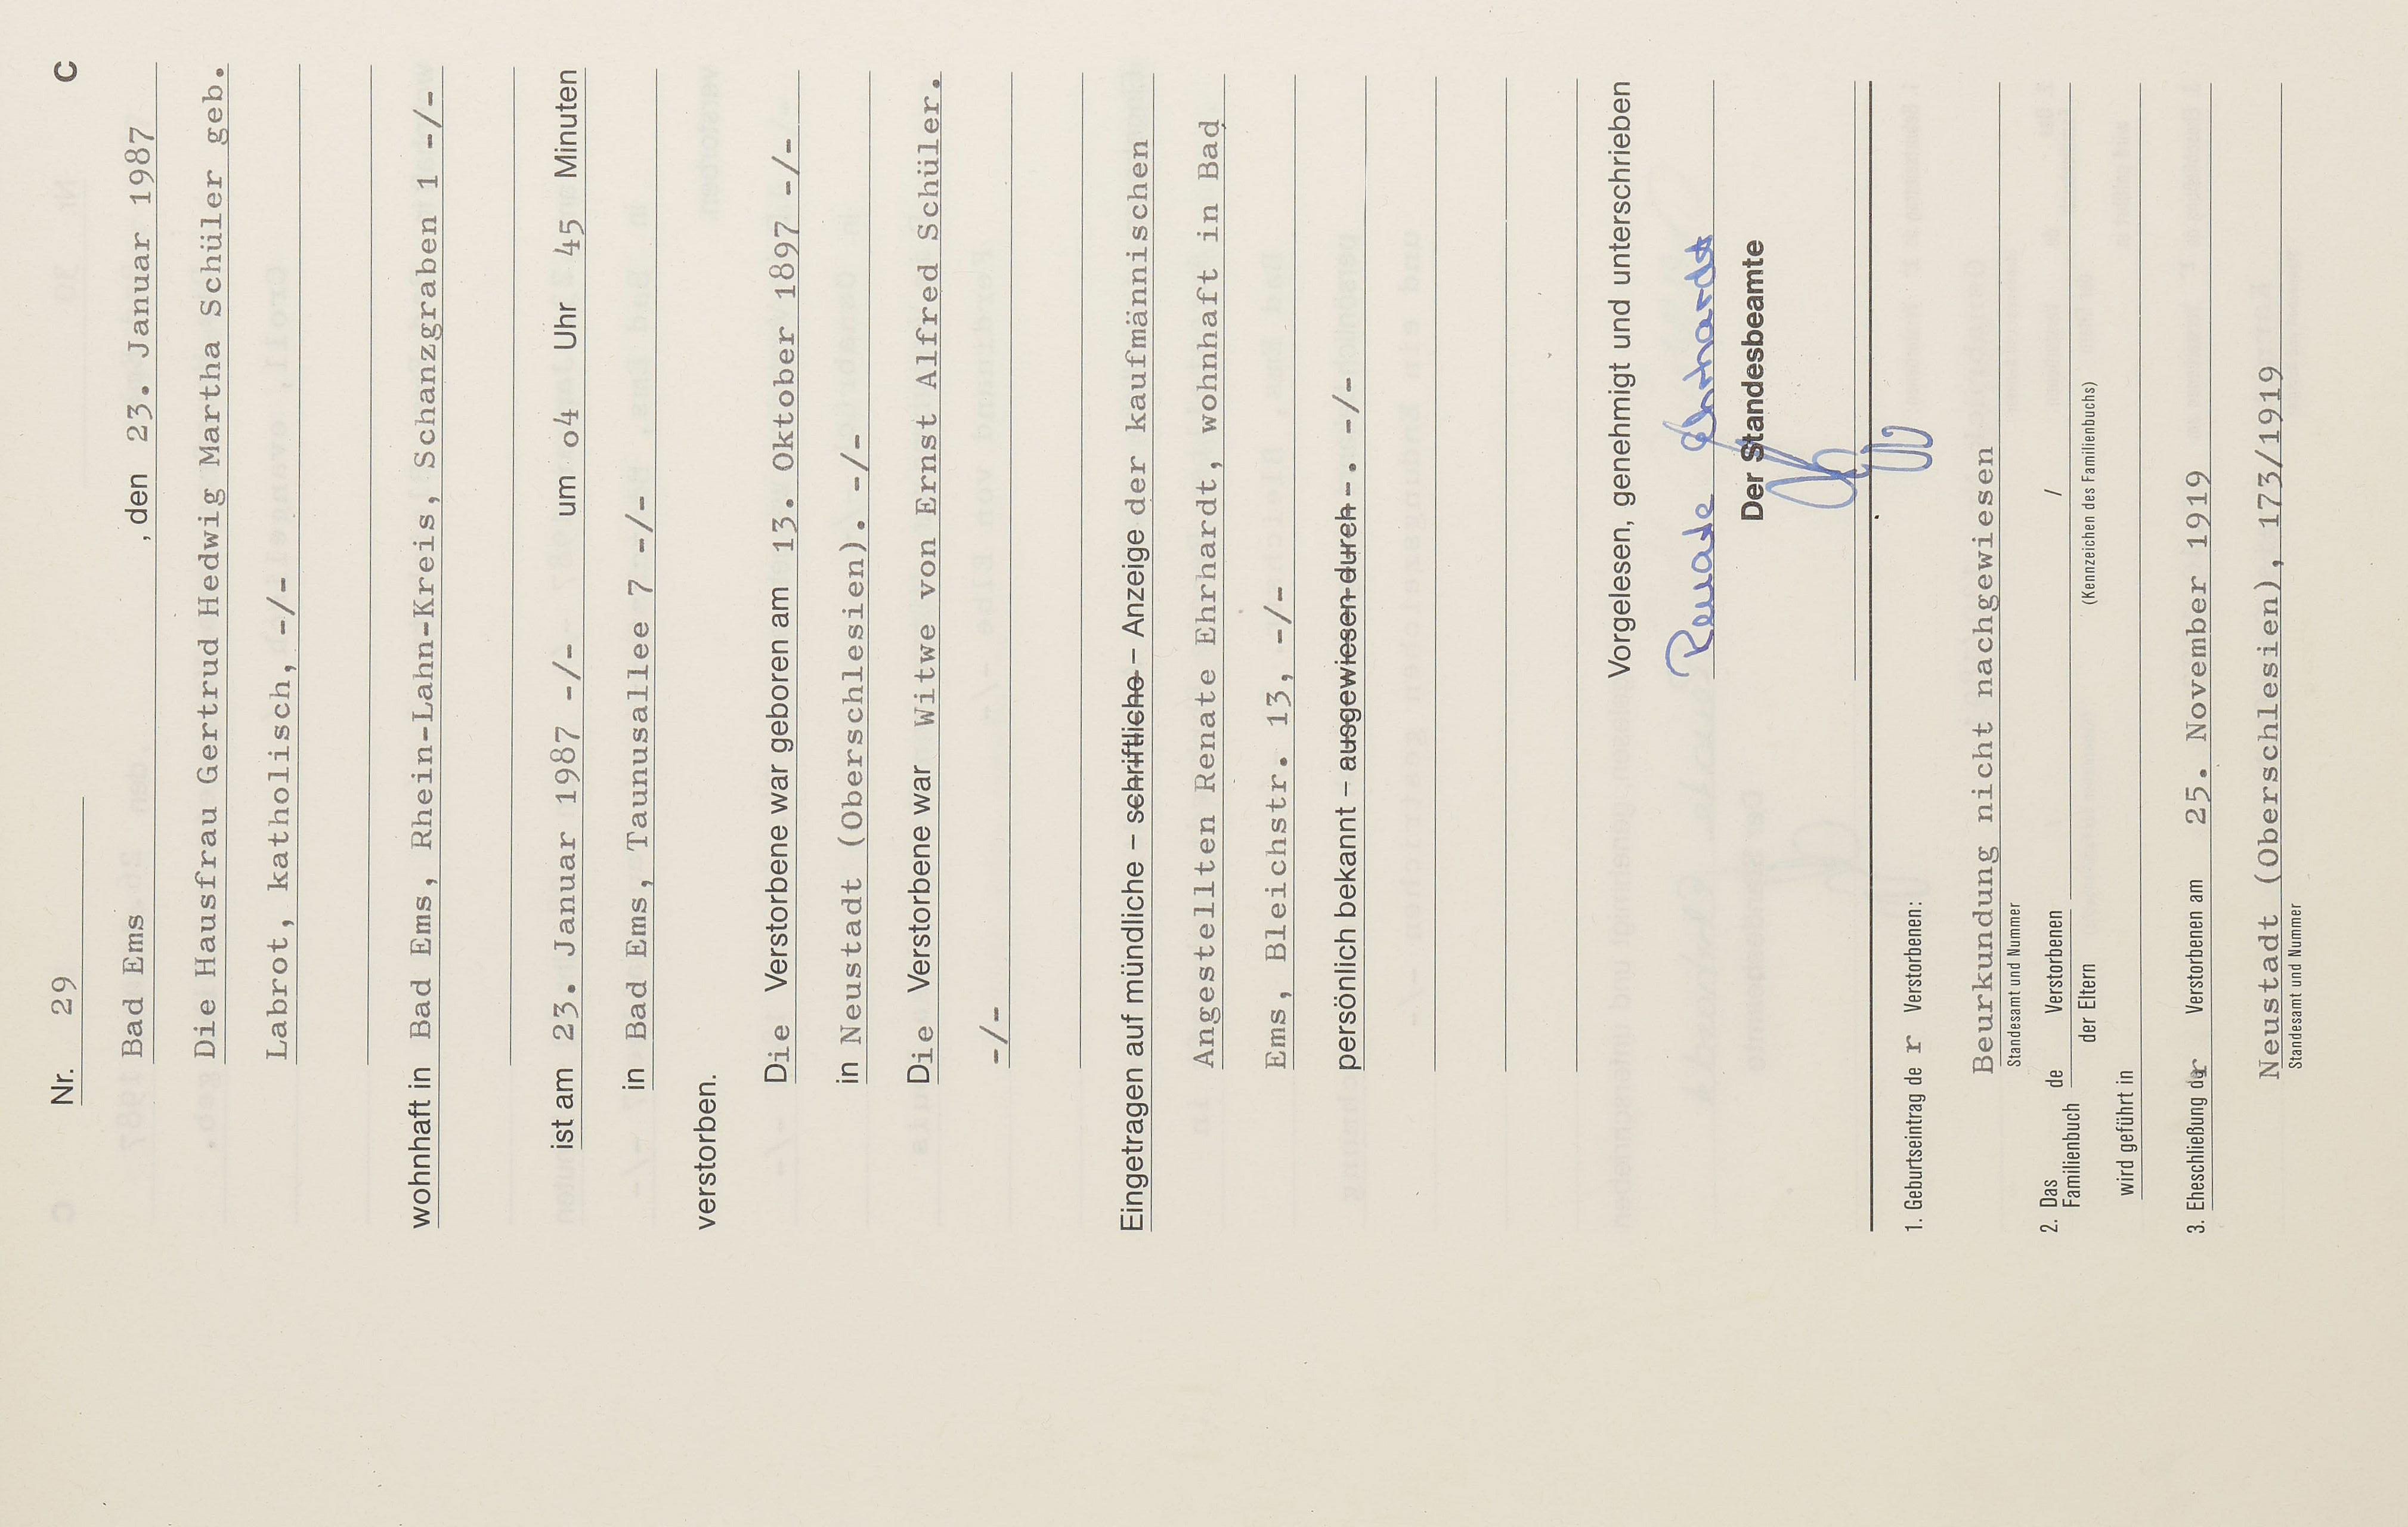 Nr. 29 C
Bad Ems , den 23. Januar 1987
Die Hausfrau Gertrud Hedwig Martha Schüler geb.
Labrot, katholisch, -/-
wohnhaft in Bad Ems, Rhein-Lahn-Kreis, Schanzgraben 1 -/-
ist am 23. Januar 1987 -/- um o4 Uhr 45 Minuten
in Bad Ems, Taunusallee 7 -/-
verstorben.
Die Verstorbene war geboren am 13. Oktober 1897 -/-
in Neustadt (Oberschlesien). -/-
Die Verstorbene war Witwe von Ernst Alfred Schüler.
-/-
Eingetragen auf mündliche – schriftliche – Anzeige der kaufmännischen
Angestellten Renate Ehrhardt, wohnhaft in Bad
Ems, Bleichstr. 13, -/-
persönlich bekannt – ausgewiesen durch -. -/-
Vorgelesen, genehmigt und unterschrieben
Renate Ehrhardt
Der Standesbeamte
1. Geburtseintrag de r Verstorbenen:
Beurkundung nicht nachgewiesen
Standesamt und Nummer
2. Das Familienbuch de Verstorbenen /
der Eltern (Kennzeichen des Familienbuchs)
wird geführt in
3. Eheschließung der Verstorbenen am 25. November 1919
Neustadt (Oberschlesien), 173/1919
Standesamt und Nummer